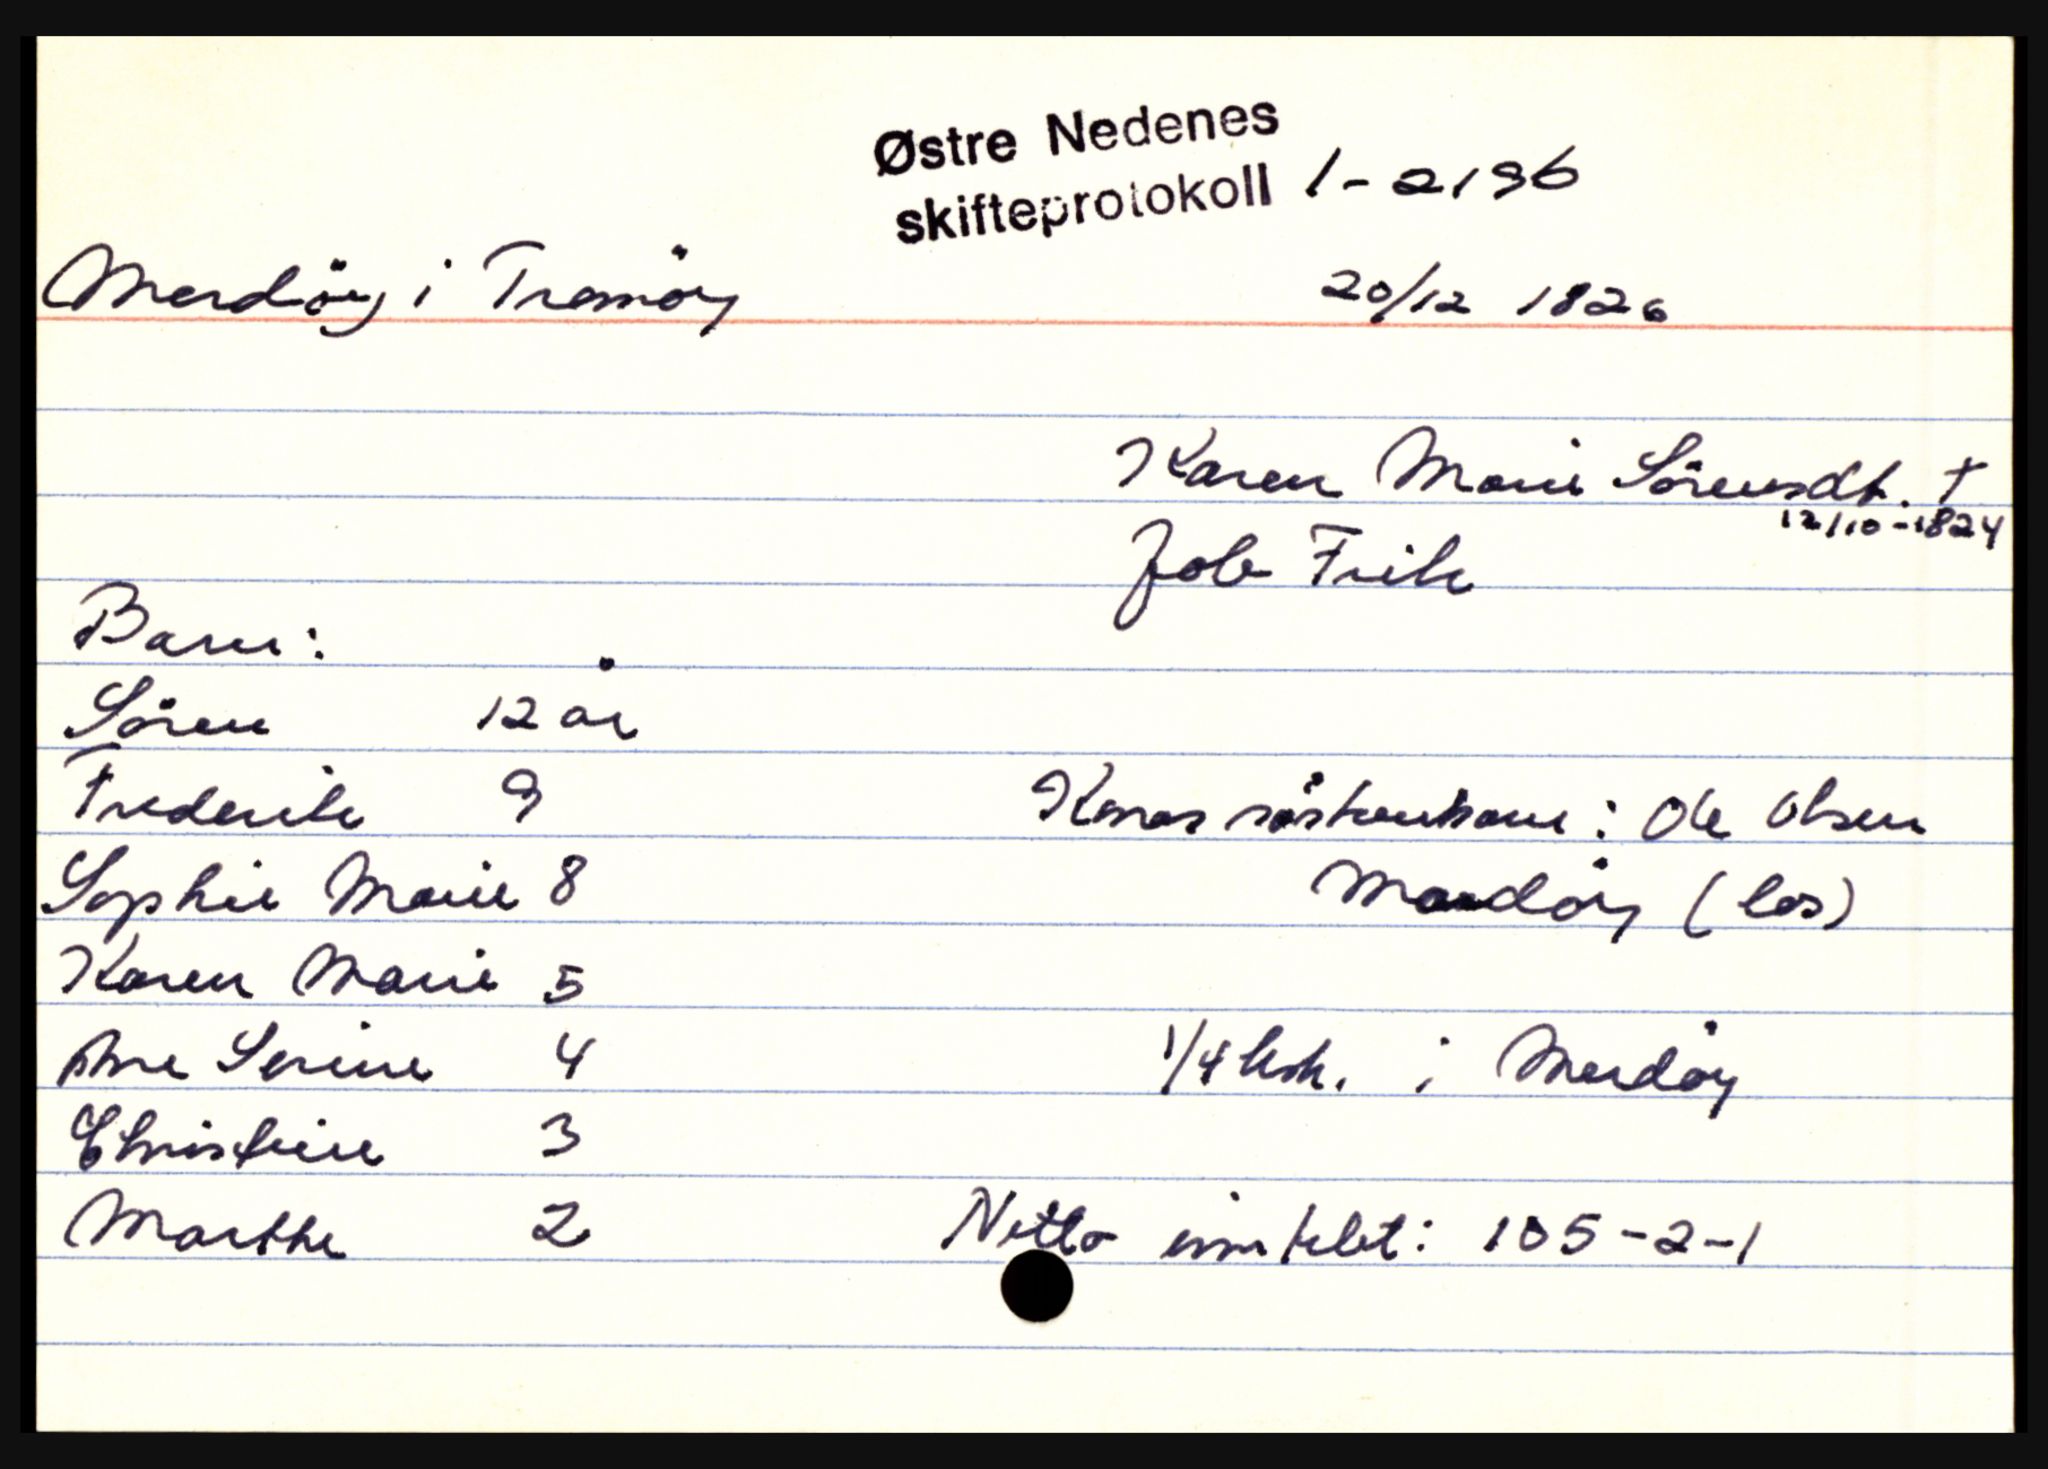 Østre Nedenes
skifteprotokoll 1-2196
Merdöy i Tromöy
20/12 1826
Karen Marie Sörensdt. †
12/10-1824
Job Frik
Barn:
Sören 12 år
Frederik 9
Konas söskenbarn: Ole Olsen
Sophie Marie 8
Merdöy (los)
Karen Marie 5
Ane Serine 4
1/4 hsh. i Merdöy
Christine 3
Marthe 2
Netto innteket: 105-2-1